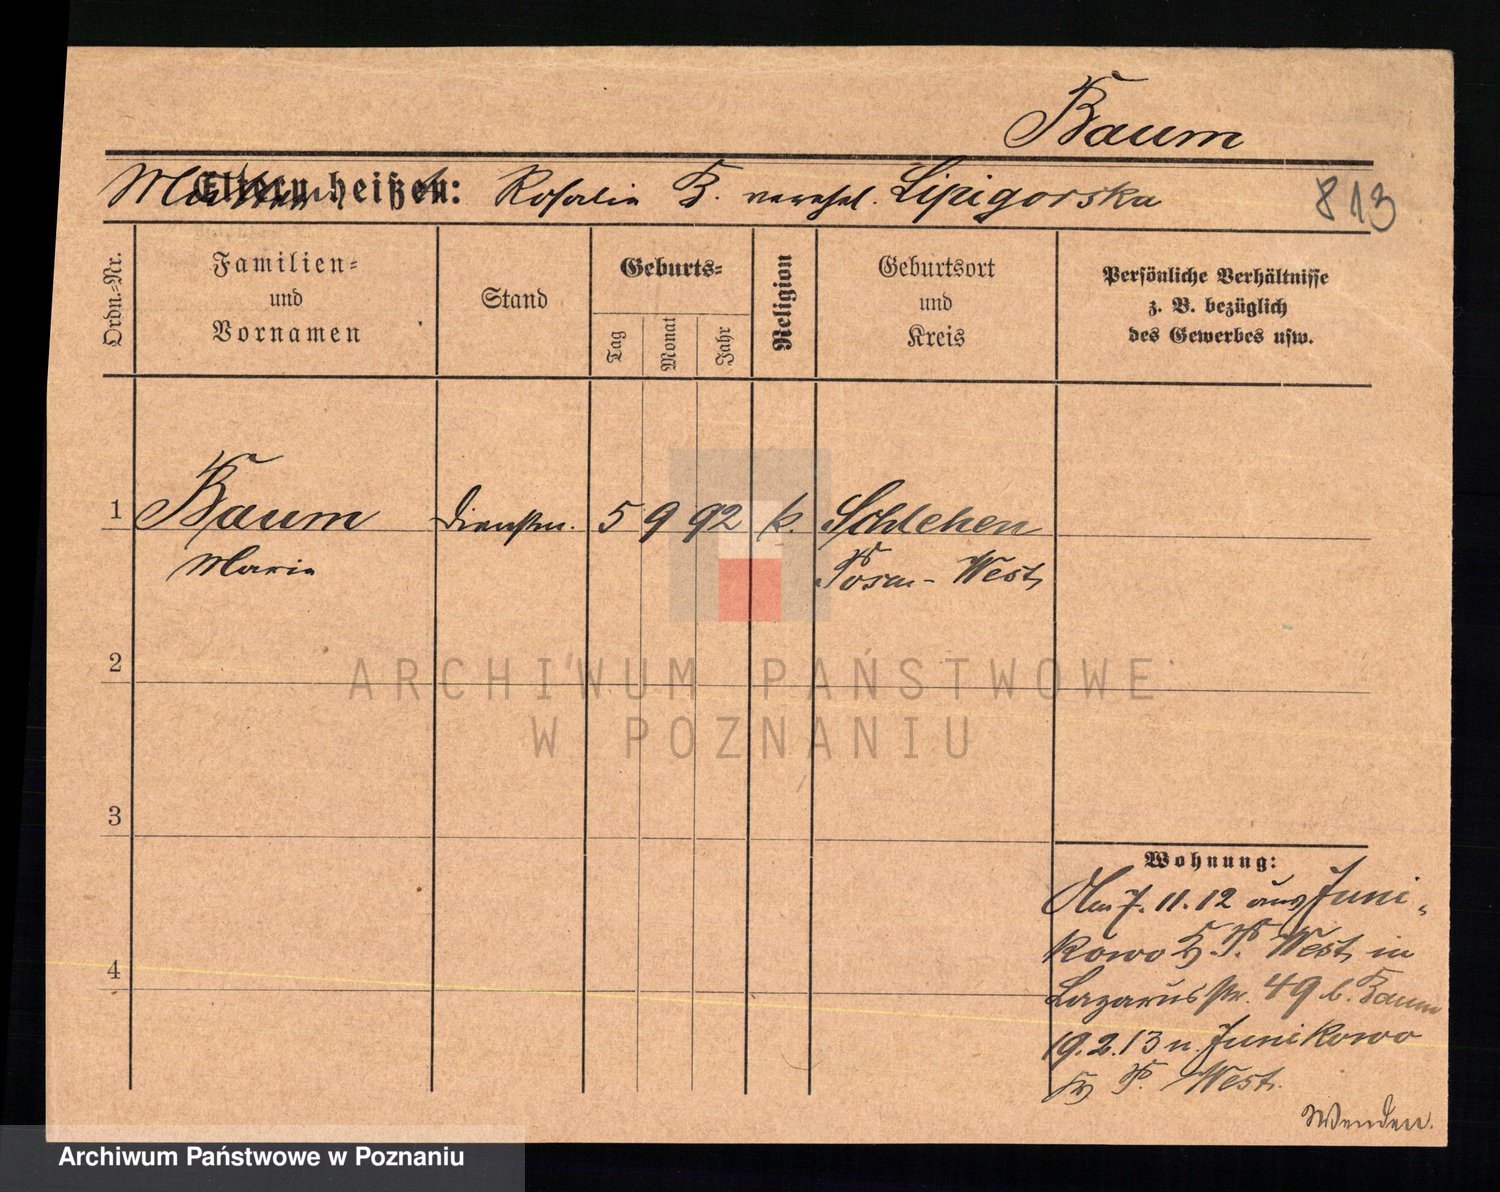 Baum
Mutter heißt: Rosalie B. verehel. Lipigorska
813
Ordn.=Nr.
Familien=
und
Vornamen
Stand
Geburts=
Tag
Monat
Jahr
Religion
Geburtsort
und
Kreis
Persönliche Verhältnisse
z. B. bezüglich
des Gewerbes usw.
1
Baum
Marie
Dienstm.
5
9
92
k.
Schlehen
Posen-West
2
ARCHIWUM PAŃSTWOWE
W POZNANIU
3
4
Wohnung:
Am 7. 11. 12 aus Juni-
kowo Kr. P. West in
Lazarusstr. 49 b. Baum
19.2.13 n. Junikowo
Kr P. West.
Wenden.
Archiwum Państwowe w Poznaniu